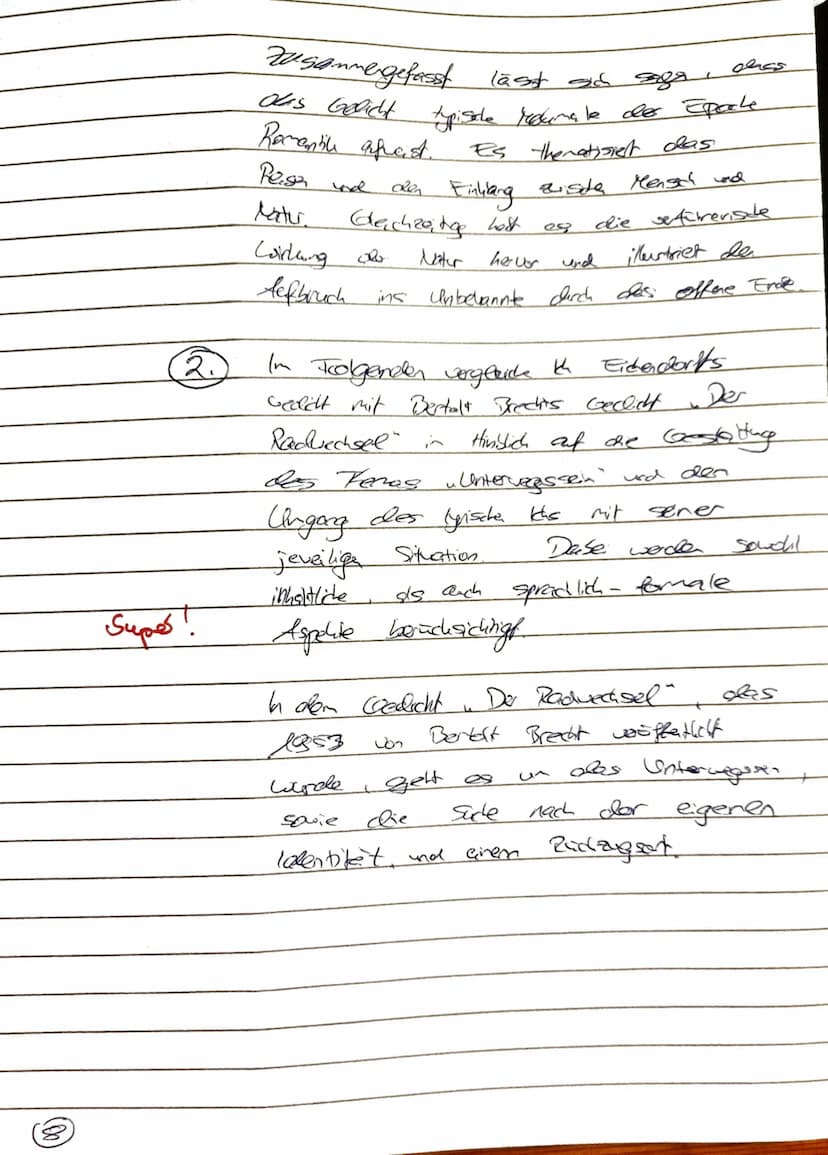 Zusammengefasst lässt sich sagen, dass
das Gedicht typische Merkmale der Epoche
Romantik aufweist. Es thematisiert das
Reisen und den Einklang zwischen Mensch und
Natur. Gleichzeitig hebt es die verführerische
Wirkung der Natur hervor und illustriert den
Aufbruch ins Unbekannte durch das offene Ende.
2. Im Folgenden vergleiche ich Eichendorffs
Gedicht mit Bertolt Brechts Gedicht „Der
Radwechsel“ in Hinblick auf die Gestaltung
des Themas „Unterwegssein“ und den
Umgang des lyrischen Ichs mit seiner
jeweiligen Situation. Dabei werden sowohl
inhaltliche, als auch sprachlich-formale
Super!
Aspekte berücksichtigt.
In dem Gedicht „Der Radwechsel“, das
1953 von Bertolt Brecht veröffentlicht
wurde, geht es um das Unterwegssein,
sowie die Suche nach der eigenen
Identität, und einem Rückzugsort.
8